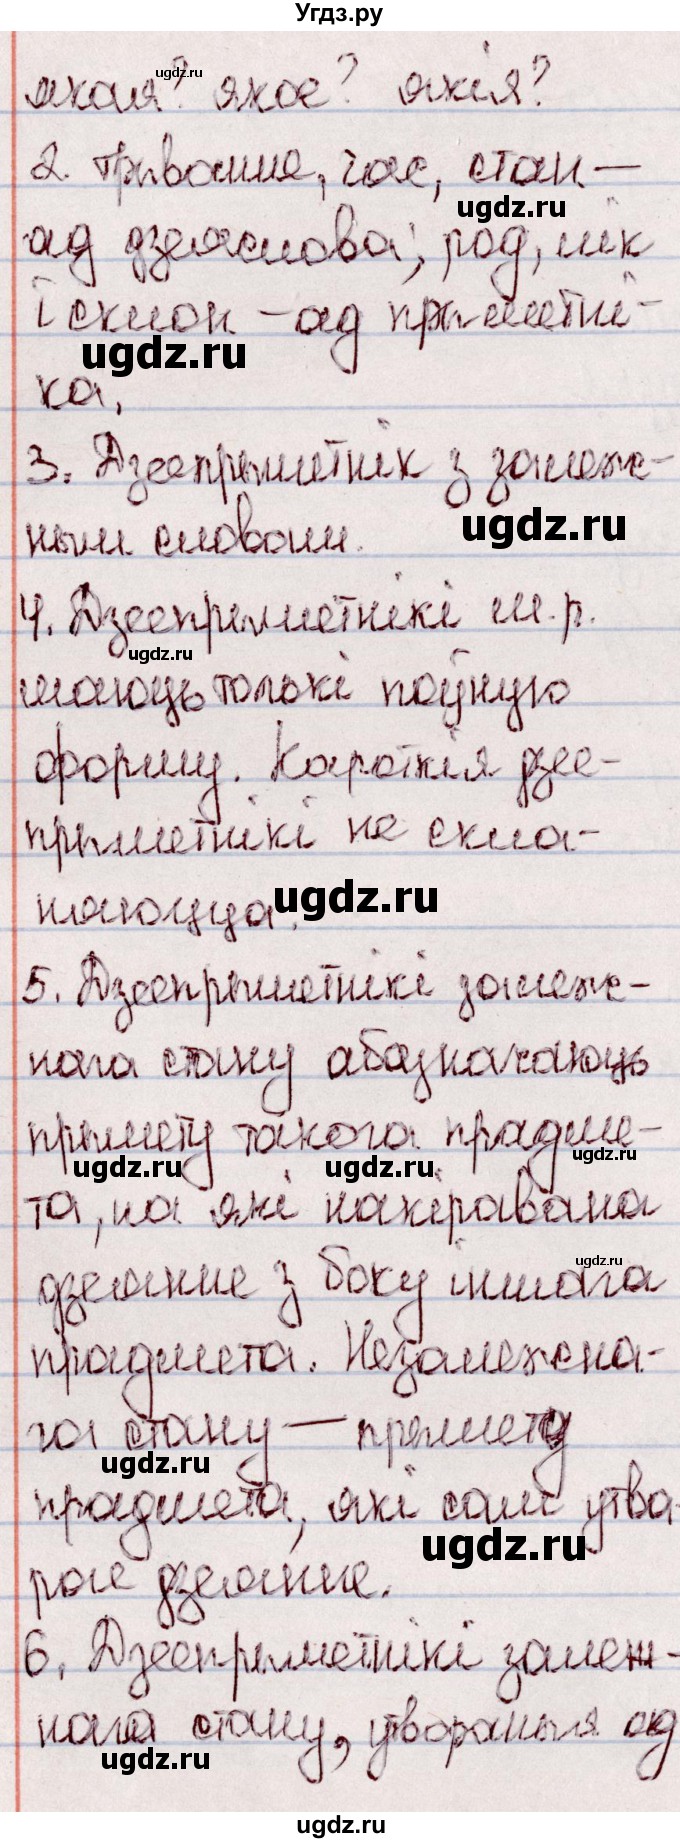 Угдз.ру
якая? якое? якія?
2. Трыванне, час, стан —
ад дзеяслова; род, лік
і склон – ад прыметні-
ка.
3. Дзеепрыметнік з залеж-
ным словам.
4. Дзеепрыметнікі м.р.
маюць толькі поўную
форму. Кароткія дзее-
прыметнікі не скла-
няюцца.
5. Дзеепрыметнікі залеж-
нага стану абазначаюць
прымету такога прадме-
та, на які накіравана
дзеянне з боку іншага
прадмета. Незалежна-
га стану — прымету
прадмета, які сам утва
рае дзеянне.
6. Дзеепрыметнікі залеж-
нага стану, утвораныя ад
ugdz.ru